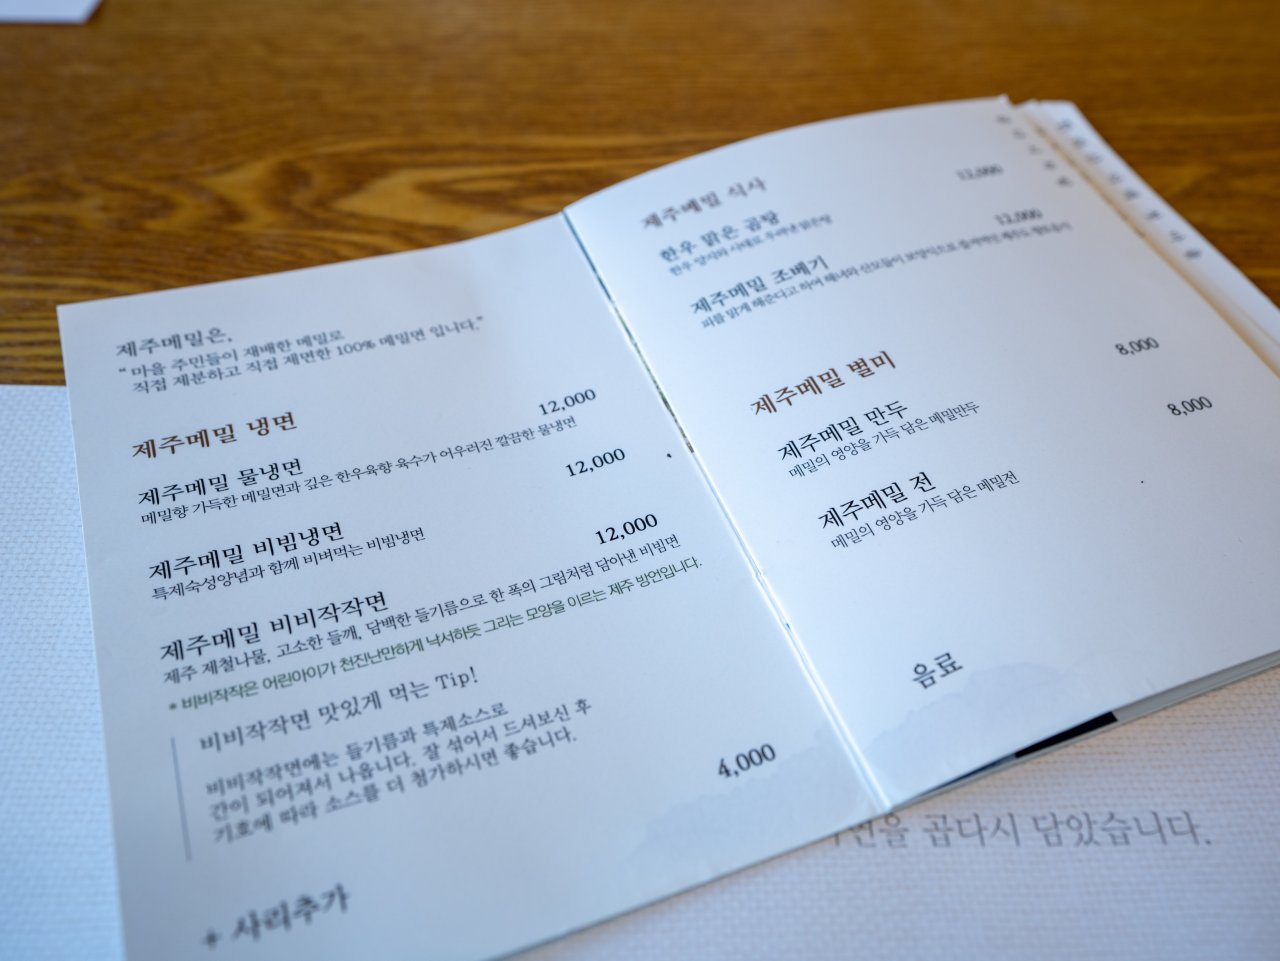 제주메밀은,
“ 마을 주민들이 재배한 메밀로
직접 제분하고 직접 제면한 100% 메밀면 입니다.”
제주메밀 냉면
제주메밀 물냉면 12,000
메밀향 가득한 메밀면과 깊은 한우육향 육수가 어우러진 깔끔한 물냉면
제주메밀 비빔냉면 12,000
특제숙성양념과 함께 비벼먹는 비빔냉면
제주메밀 비비작작면 12,000
제주 제철나물, 고소한 들깨, 담백한 들기름으로 한 폭의 그림처럼 담아낸 비빔면
* 비비작작은 어린아이가 천진난만하게 낙서하듯 그리는 모양을 이르는 제주 방언입니다.
비비작작면 맛있게 먹는 Tip!
비비작작면에는 들기름과 특제소스로
간이 되어져서 나옵니다. 잘 섞어서 드셔보신 후
기호에 따라 소스를 더 첨가하시면 좋습니다.
+ 사리추가 4,000
제주메밀 식사
한우 맑은 곰탕 12,000
한우 양지와 사태로 우려낸 맑은탕
제주메밀 조베기 12,000
피를 맑게 해준다고 하여 해녀와 산모들이 보양식으로 즐겨먹던 제주도 향토음식
제주메밀 별미
제주메밀 만두 8,000
메밀의 영양을 가득 담은 메밀만두
제주메밀 전 8,000
메밀의 영양을 가득 담은 메밀전
음료
곱다시 담았습니다.